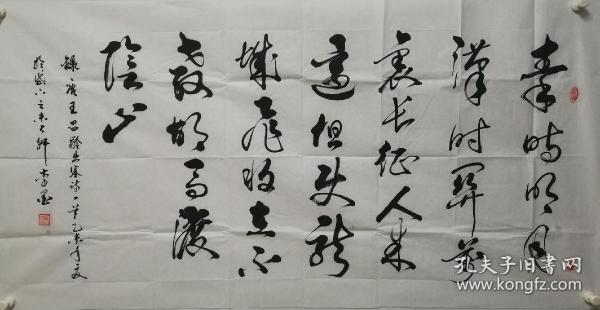 秦时明月
汉时关万
里长征人未
还但使龙
城飞将在不
教胡马渡
阴山
录唐王昌龄出塞诗一首乙未年夏
孔夫子旧书网
www.kongfz.com